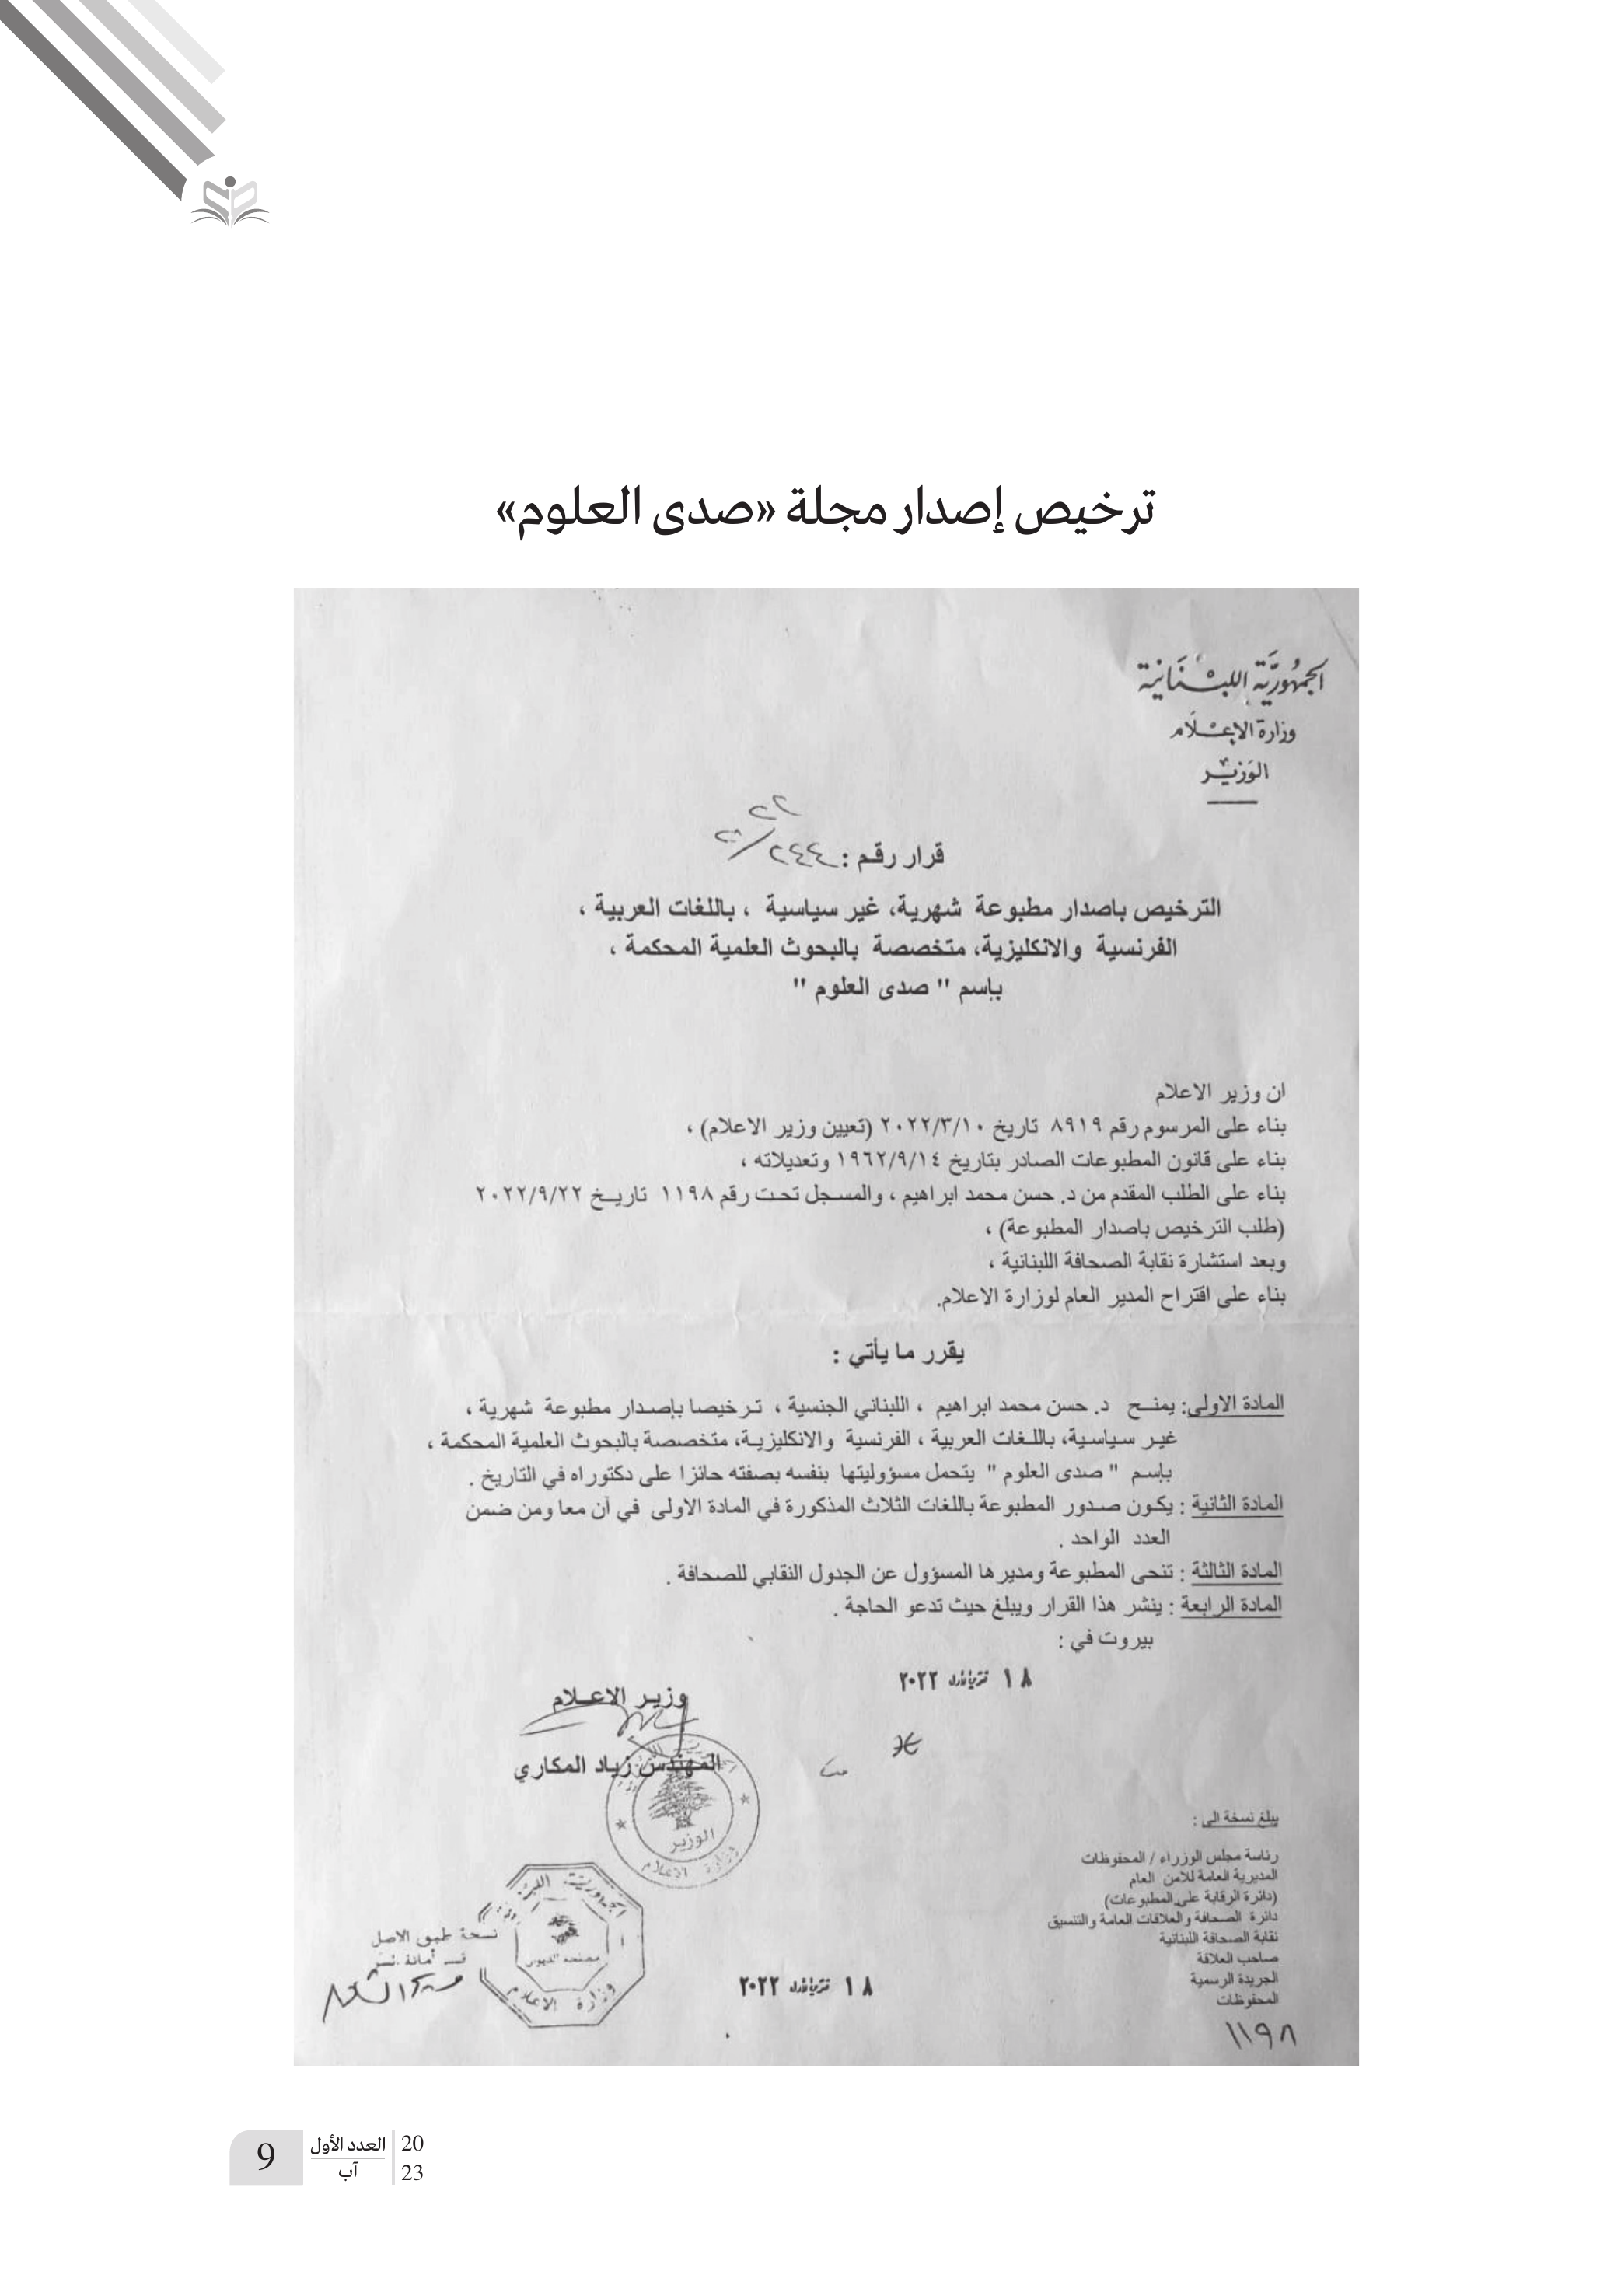 ترخيص إصدار مجلة «صدى العلوم»
الجمهورية اللبنانية
وزارة الإعلام
الوزير
قرار رقم : ٢٤٤
٢٢
الترخيص باصدار مطبوعة شهرية، غير سياسية ، باللغات العربية ،
الفرنسية والانكليزية، متخصصة بالبحوث العلمية المحكمة ،
بإسم " صدى العلوم "
ان وزير الاعلام
بناء على المرسوم رقم ٨٩١٩ تاريخ ٢٠٢٢/٣/١٠ (تعيين وزير الاعلام) ،
بناء على قانون المطبوعات الصادر بتاريخ ١٩٦٢/٩/١٤ وتعديلاته ،
بناء على الطلب المقدم من د. حسن محمد ابراهيم ، والمسجل تحت رقم ١١٩٨ تاريخ ٢٠٢٢/٩/٢٢
(طلب الترخيص باصدار المطبوعة) ،
وبعد استشارة نقابة الصحافة اللبنانية ،
بناء على اقتراح المدير العام لوزارة الاعلام.
يقرر ما يأتي :
المادة الاولى: يمنح د. حسن محمد ابراهيم ، اللبناني الجنسية ، ترخيصا بإصدار مطبوعة شهرية ،
غير سياسية، باللغات العربية ، الفرنسية والانكليزية، متخصصة بالبحوث العلمية المحكمة ،
بإسم " صدى العلوم " يتحمل مسؤوليتها بنفسه بصفته حائزا على دكتوراه في التاريخ .
المادة الثانية : يكون صدور المطبوعة باللغات الثلاث المذكورة في المادة الاولى في آن معا ومن ضمن
العدد الواحد .
المادة الثالثة : تنحى المطبوعة ومديرها المسؤول عن الجدول النقابي للصحافة .
المادة الرابعة : ينشر هذا القرار ويبلغ حيث تدعو الحاجة .
بيروت في :
١٨ تشرين الأول ٢٠٢٢
وزير الاعلام
المهندس زياد المكاري
الوزير
وزارة الاعلام
يبلغ نسخة الى :
رئاسة مجلس الوزراء / المحفوظات
المديرية العامة للامن العام
(دائرة الرقابة على المطبوعات)
دائرة الصحافة والعلاقات العامة والتنسيق
نقابة الصحافة اللبنانية
صاحب العلاقة
الجريدة الرسمية
المحفوظات
١١٩٨
نسخة طبق الاصل
وزارة الاعلام
١٨ تشرين الأول ٢٠٢٢
20
23
العدد الأول
آب
9